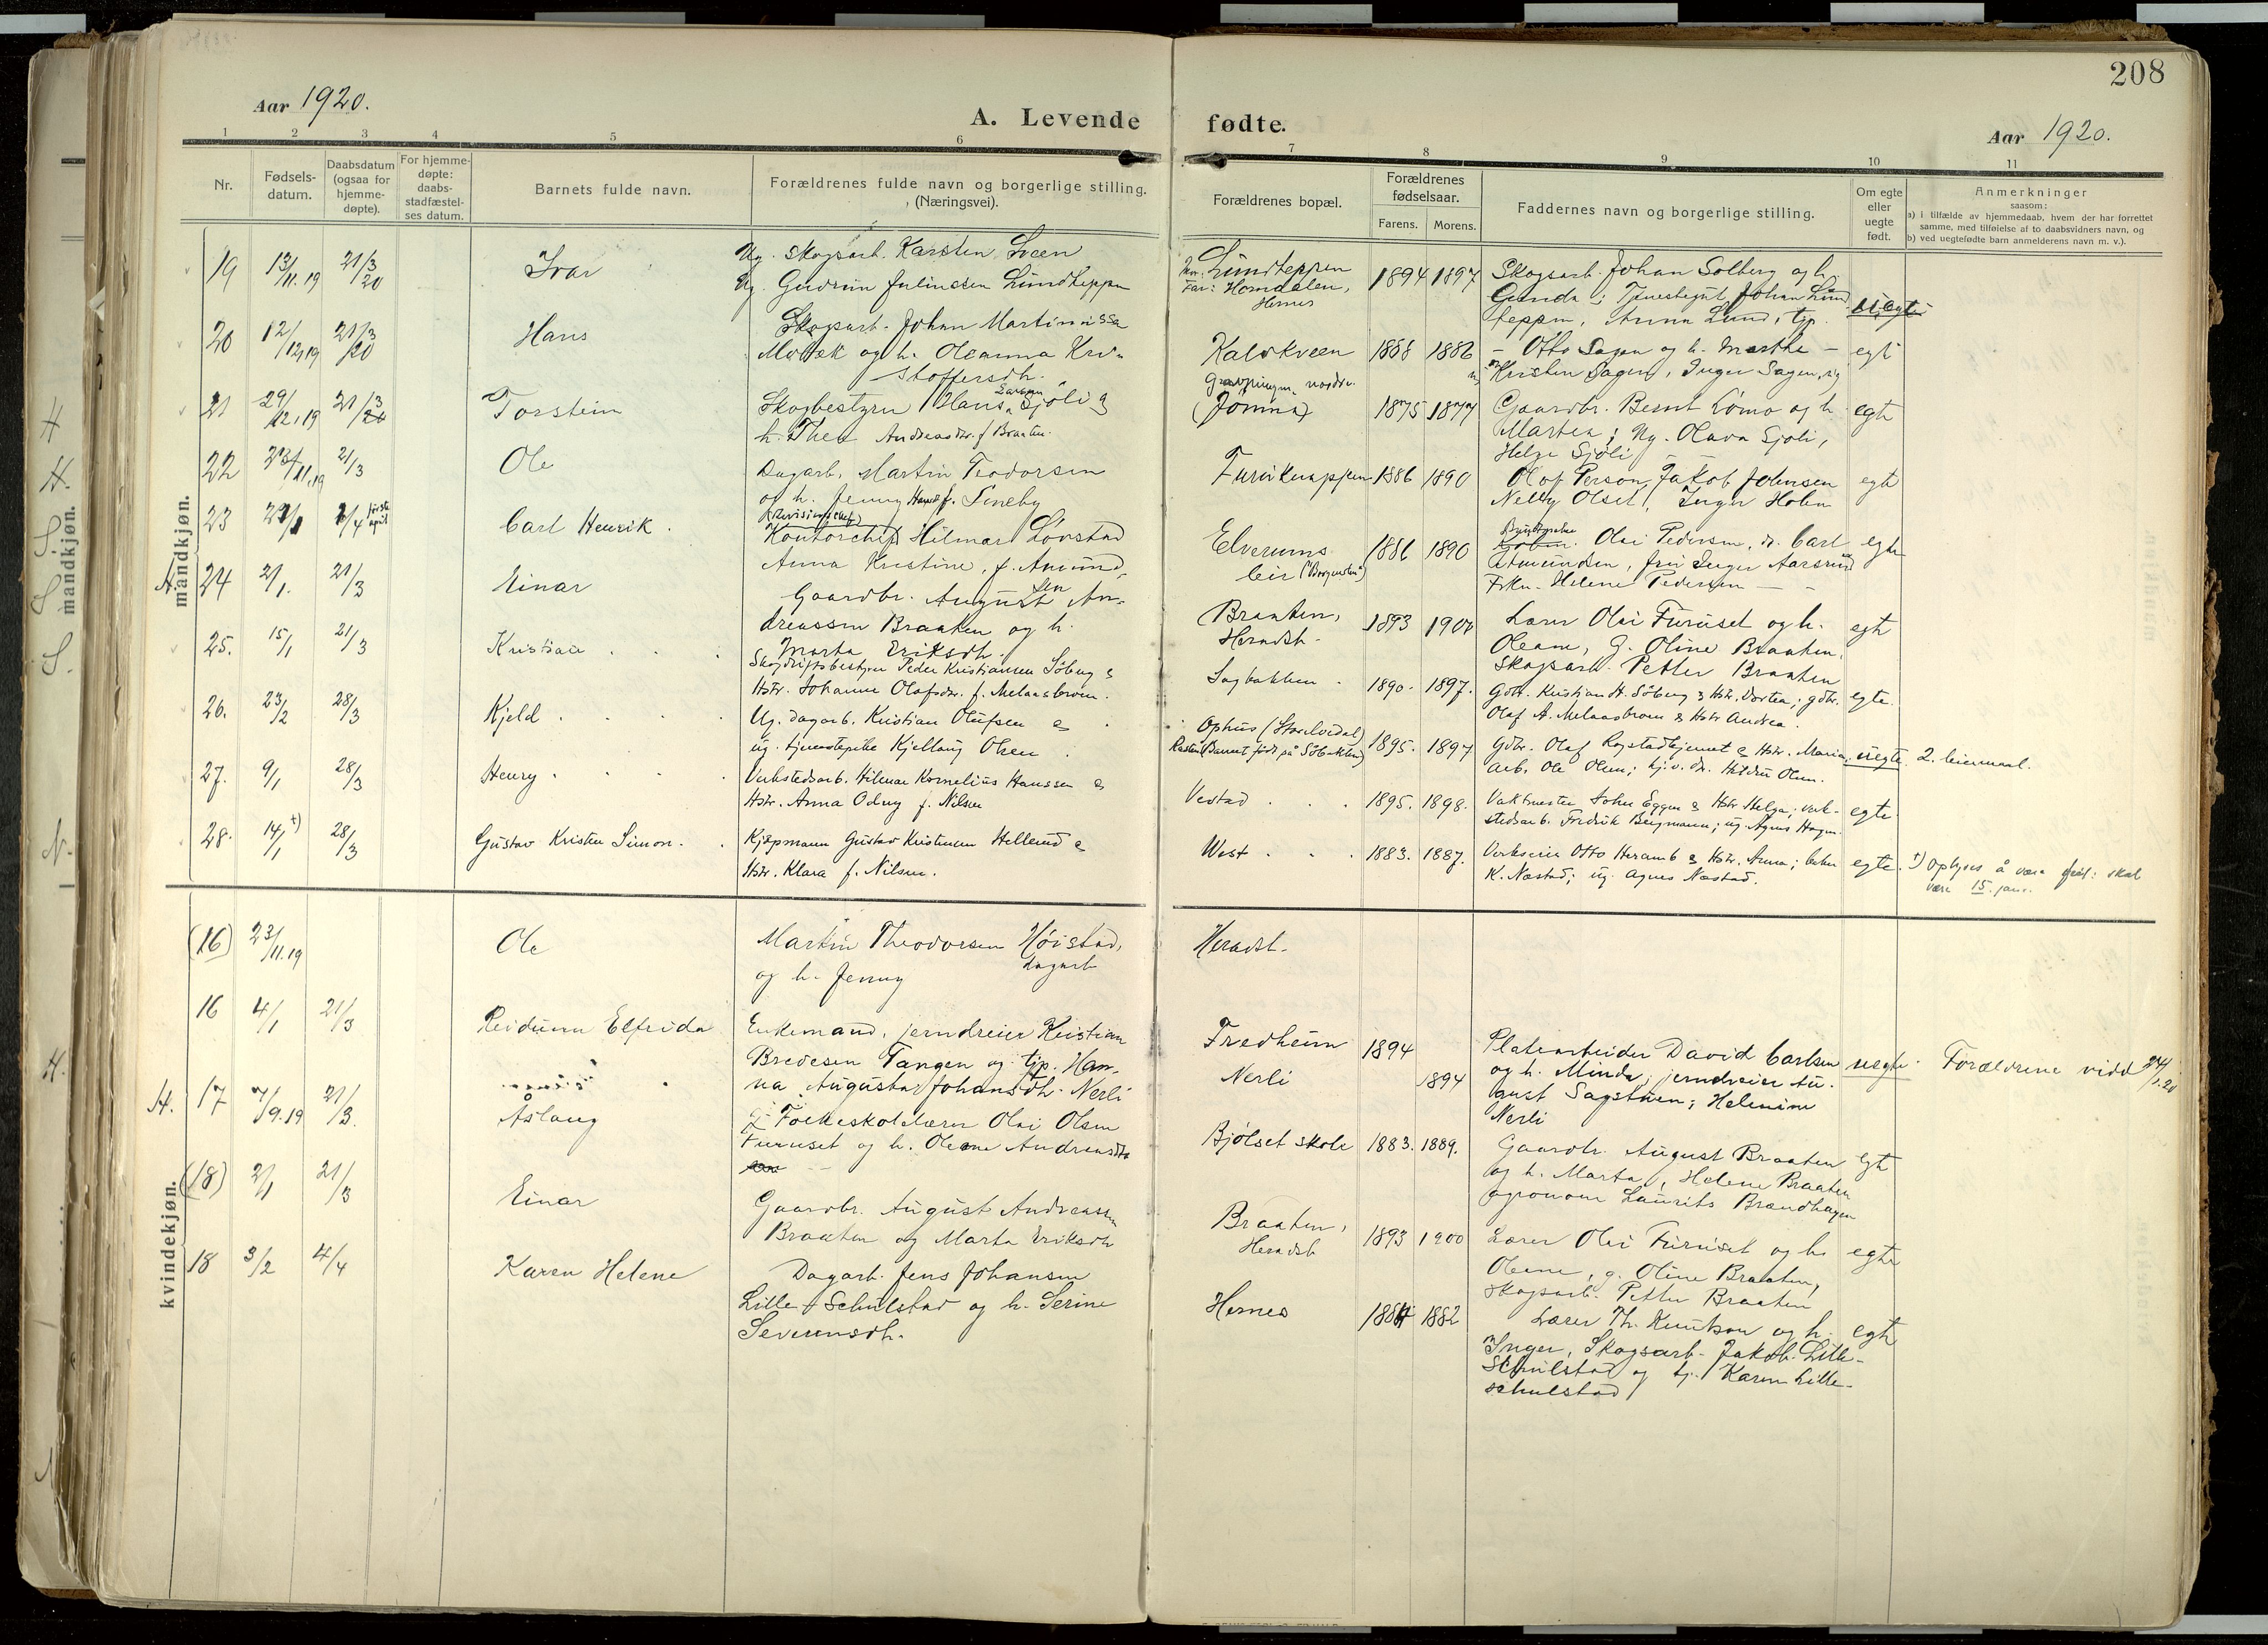 208
Aar 1920.
A. Levende
fødte.
Aar 1920.
1 2 3 4 5 6
7 8 9 10 11
Nr.
Fødsels-
datum.
Daabsdatum
(ogsaa for
hjemme-
døpte).
For hjemme-
døpte:
daabs-
stadfæstel-
ses datum.
Barnets fulde navn.
Forældrenes fulde navn og borgerlige stilling.
(Næringsvei).
Forældrenes bopæl.
Forældrenes
fødselsaar.
Farens. Morens.
Faddernes navn og borgerlige stilling.
Om egte
eller
uegte
født.
Anmerkninger
saasom:
a) i tilfælde av hjemmedaab, hvem der har forrettet
samme, med tilføielse af to daabsvidners navn, og
b) ved uegtefødte barn anmelderens navn m. v.).
mandkjøn.
19 13/11.19 21/3 20 Ivar
Ug. Skogsarb. Karsten Sveen
Ug. Gudrun Julinssen Lundteppen
Lundteppen
Far: Horndalen,
Hernes
1894 1897
Skogsarb. Johan Solberg og h.
Gunda; Tjenestegut Johan Lund
teppen, Anna Lund, tjp.
uegte
20 12/12,19 21/3 20 Hans
Skogsarb. Johan Martinussen
Molbæk og h. Oleanna Kri-
stoffersdh.
Kalvkveen
1888 1886
- Otto Sagen og h. Marthe -
Kristen Sagen, Inger Sagen, ug
egt
21 29/12,19 21/3 20 Torstein
Skogbestyrer Hans Larsen Sjøli og
h. Thea Andreasdr. f. Braaten.
(Jømna)
1875 1877
Gaardbr. Bernt Lømo og h.
Marthea; Ug. Olava Sjøli,
Helge Sjøli
egte
22 23/11,19 21/3 Ole
Dagarb. Martin Teodorsen
og h. Jenny f. Sineby
Furuknappen
1886 1890
Olof Person, Jakob Johnsen
Nelly Olset, Inger Holen
egt
23 første april
Carl Henrik.
Kontorchef Hilmar Løvstad
Anna Kristine, f. Amund-
sen
Elverums
leir
1886 1890
Olai Pedersen, Carl
Amundsen, fru Inger Aarsrud
Frkn. Helene Pedersen
egte
24 2/1. 21/3 Einar
Gaardbr. August An-
dreassen Braaten og h.
Marta Eriksdh.
Braaten,
Heradsb.
1893 1900
Lærer Olai Furuset og h.
Oleane, g. Oline Braaten,
Skogsarb. Petter Braaten
egt
25. 15/1 21/3 Kristian
Skogdriftsbestyrer Peder Kristiansen Søberg &
Hstr. Johanne Olafsdr. f. Melaasbroen.
Sagbakken
1890. 1897.
Gdbr. Kristian H. Søberg & Hstr. Dortea; gdbr.
Olaf A. Melaasbroen & Hstr Andrea.
egte.
26. 23/2 28/3 Kjeld
Ug. dagarb. Kristian Olufsen &
ug. tjenestepike Kjellaug Olsen.
Ophus (Storelvedal)
1895. 1897
Gdbr. Olaf Rogstadkjernet & Hstr. Maria;
Arb. Ole Olsen; Olsen.
uegte.
2. leiermaal.
27. 9/1 28/3 Henry
Verkstedsarb. Hilmar Kornelius Hanssen &
Hstr. Anna Odny f. Nilsen
Vestad
1895. 1898.
Vaktmester John Eggen & Hstr Helga; verk-
stedsarb. Fredrik Bergmann; ug. Agnes Hagen
egte.
28. 14/1 †) 28/3 Gustav Kristen Simon.
Kjøpmann Gustav Kristensen Hellerud &
Hstr. Klara f. Nilsen.
West
1883. 1887.
Verkseier Otto Heramb & Hstr. Anna;
K. Næstad; ug. Agnes Næstad.
egte.
†) Oplyses å være feil: skal
være 15. jan.
kvindekjøn.
(16) 23/11.19 Ole
Martin Theodorsen Høistad,
dagarb
og h. Jenny
Heradsb.
16 4/1 21/3 Reidunn Elfrida
Enkemand, jerndreier Kristian
Bredesen Tangen og tjp. Han-
na Augusta Johansdh. Nerli
Fredheim 1894
Nerli 1894
Platearbeider David Carlsen
og h. Minda, jerndreier Au-
gust Sagstuen; Helenine
Nerli
uegte
Forældrene vidd 24/1.20
H. 17 7/9.19 21/3. Åslaug
Folkeskolelærer Olai Olsen
Furuset og h. Oleane Andreasdtr
Bjølset skole 1883. 1889.
Gaardbr. August Braaten
og h. Marta, Helene Braaten
agronom Laurits Brændhagen
egt
(18) 2/1 21/3 Einar
Gaardbr. August Andreassen
Braaten og Marta Eriksdh
Braaten,
Heradsb
1893 1900
Lærer Olai Furuset og h.
Oleane, g. Oline Braaten,
Skogsarb. Petter Braaten
egte
18 3/2 4/4 Karen Helene
Dagarb. Jens Johansen
Lille-Schulstad og h. Serine
Severinsdh.
Hernes 1884 1882
Lærer Th. Knutson og h.
Inger, Skogsarb. Jakob Lille-
Schulstad og tj. Karen Lille-
schulstad
egte